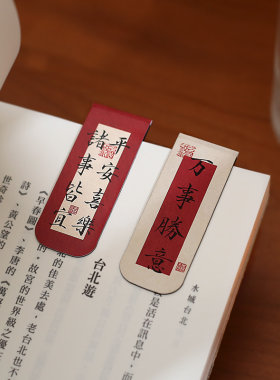 平安喜樂
諸事皆宜
万事勝意
水城台北
是活在訊息中，而
台北遊
的佳美去處，老台北也不
的故宮的世界級之優
《早春圖》
李唐的《萬
詩》、黃公望的